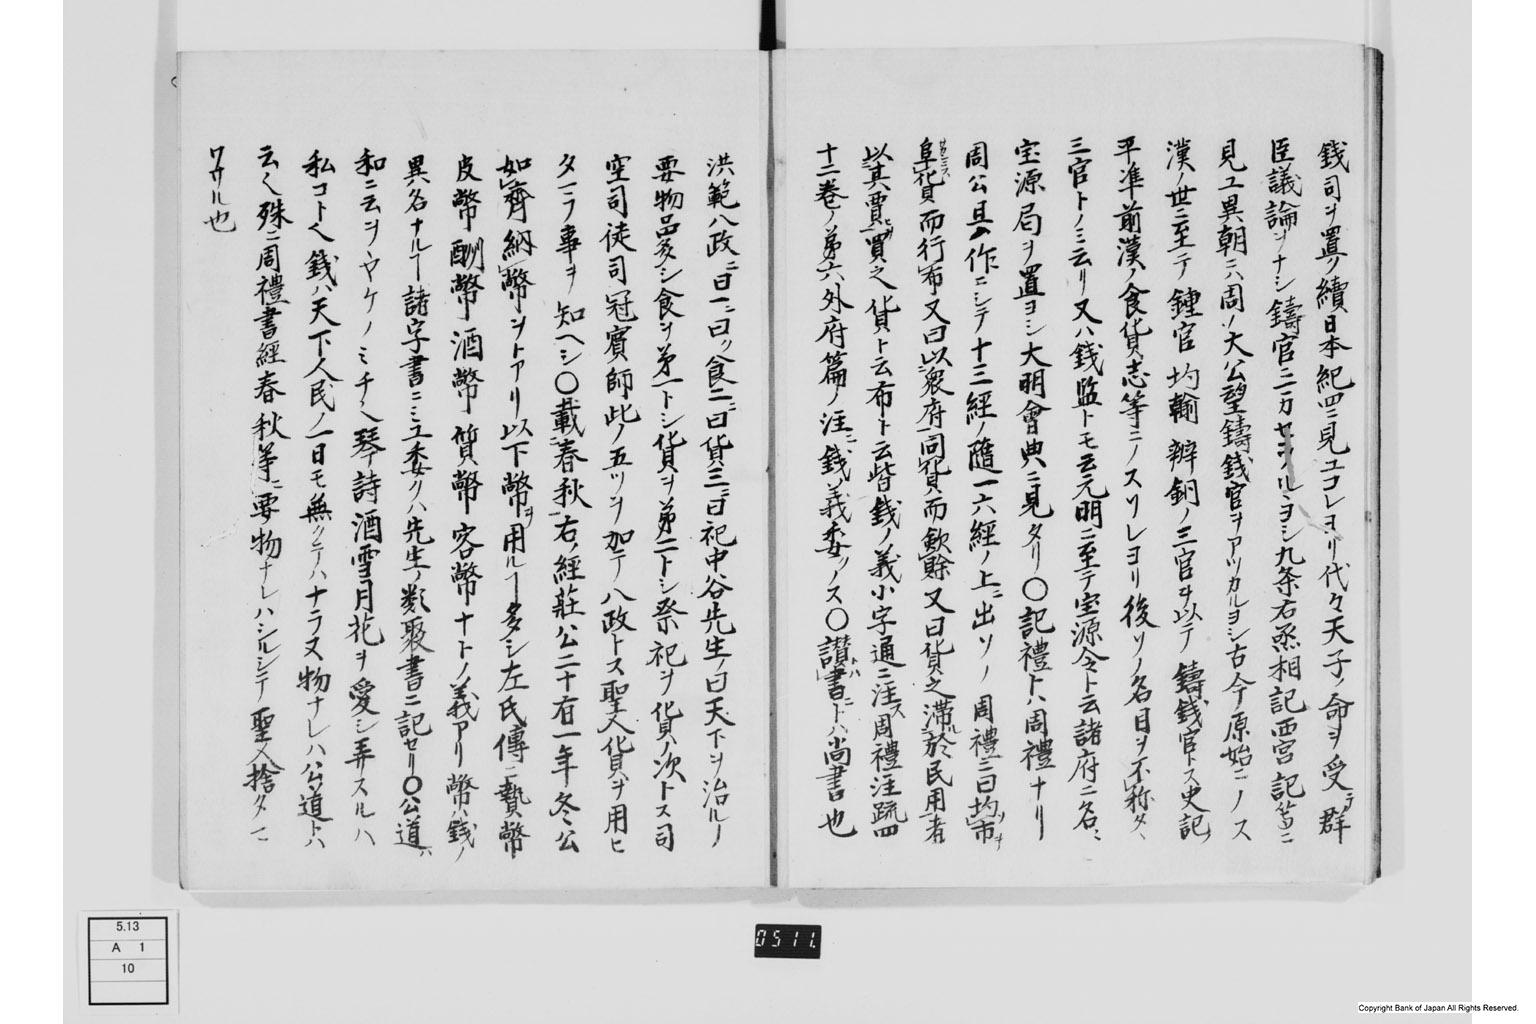 銭司ヲ置ク續日本紀四ニ見ユコレヨリ代々天子ノ命ヲ受ラ群
臣議論ヲナシ鑄官ニ二カセラルヽヨシ九条右丞相記西宮記等ニ
見ユ異朝ニハ周ノ大公望鑄銭官ヲアツカルヨシ古今原始ニノス
漢ノ世ニ至テ鍾官均輸辨銅ノ三官ヲ以テ鑄銭官トス史記ノ
平準前漢ノ食貨志等ニノスソレヨリ後ソノ名目ヲ不称タヽ
三官トノミ云リ又ハ銭監トモ云元明ニ至テ宝源令ト云諸府ニ名ニ
宝源局ヲ置ヨシ大明會典ニ見タリ〇記禮トハ周禮ナリ
周公旦ノ作ニシテ十三經ノ隨一六經ノ上ニ出ソノ周禮ニ曰均市
阜貨而行布又曰以衆府同貨而歛賖又曰貨之滞於民用者
以其賈買之貨ト云布ト云皆銭ノ義小字通ニ注ス周禮注疏四
十二巻ノ第六外府篇ノ注ニ銭ノ義委クノス〇讃書ニトハ尚書也
洪範八政ニ曰一ニ曰ク食二ニ曰貨三ニ曰祀中谷先生ノ曰天下ヲ治ルノ
要物品多シ食ヲ第一トシ貨ヲ第二トシ祭祀ヲ貨ノ次トス司
空司徒司冦賓師此ノ五ツヲ加テ八政トス聖人貨ヲ用ヒ
タマフ事ヲ知ヘシ〇載春秋ニ右ノ經莊公二十有一年冬公
如齊納幣ヲトアリ以下幣ヲ用ルー多シ左氏傳ニ贄幣
皮幣酬幣酒幣質幣客幣ナトノ義アリ幣ハ銭ノ
異名ナルー諸字書ニミユ委クハ先生ノ類聚書ニ記セリ〇公道ハ
和ニ云ヲヽヤケノミチ也琴詩酒雪月花ヲ愛シ弄スルハ
私コト也銭ハ天下人民ノ一日モ無クテハナラヌ物ナレハ公道トハ
云也殊ニ周禮書經春秋等ニ要物ナレハシルシテ聖人捨タマ
ワサル也
5.13
A 1
10
0511.
Copyright Bank of Japan All Rights Reserved.